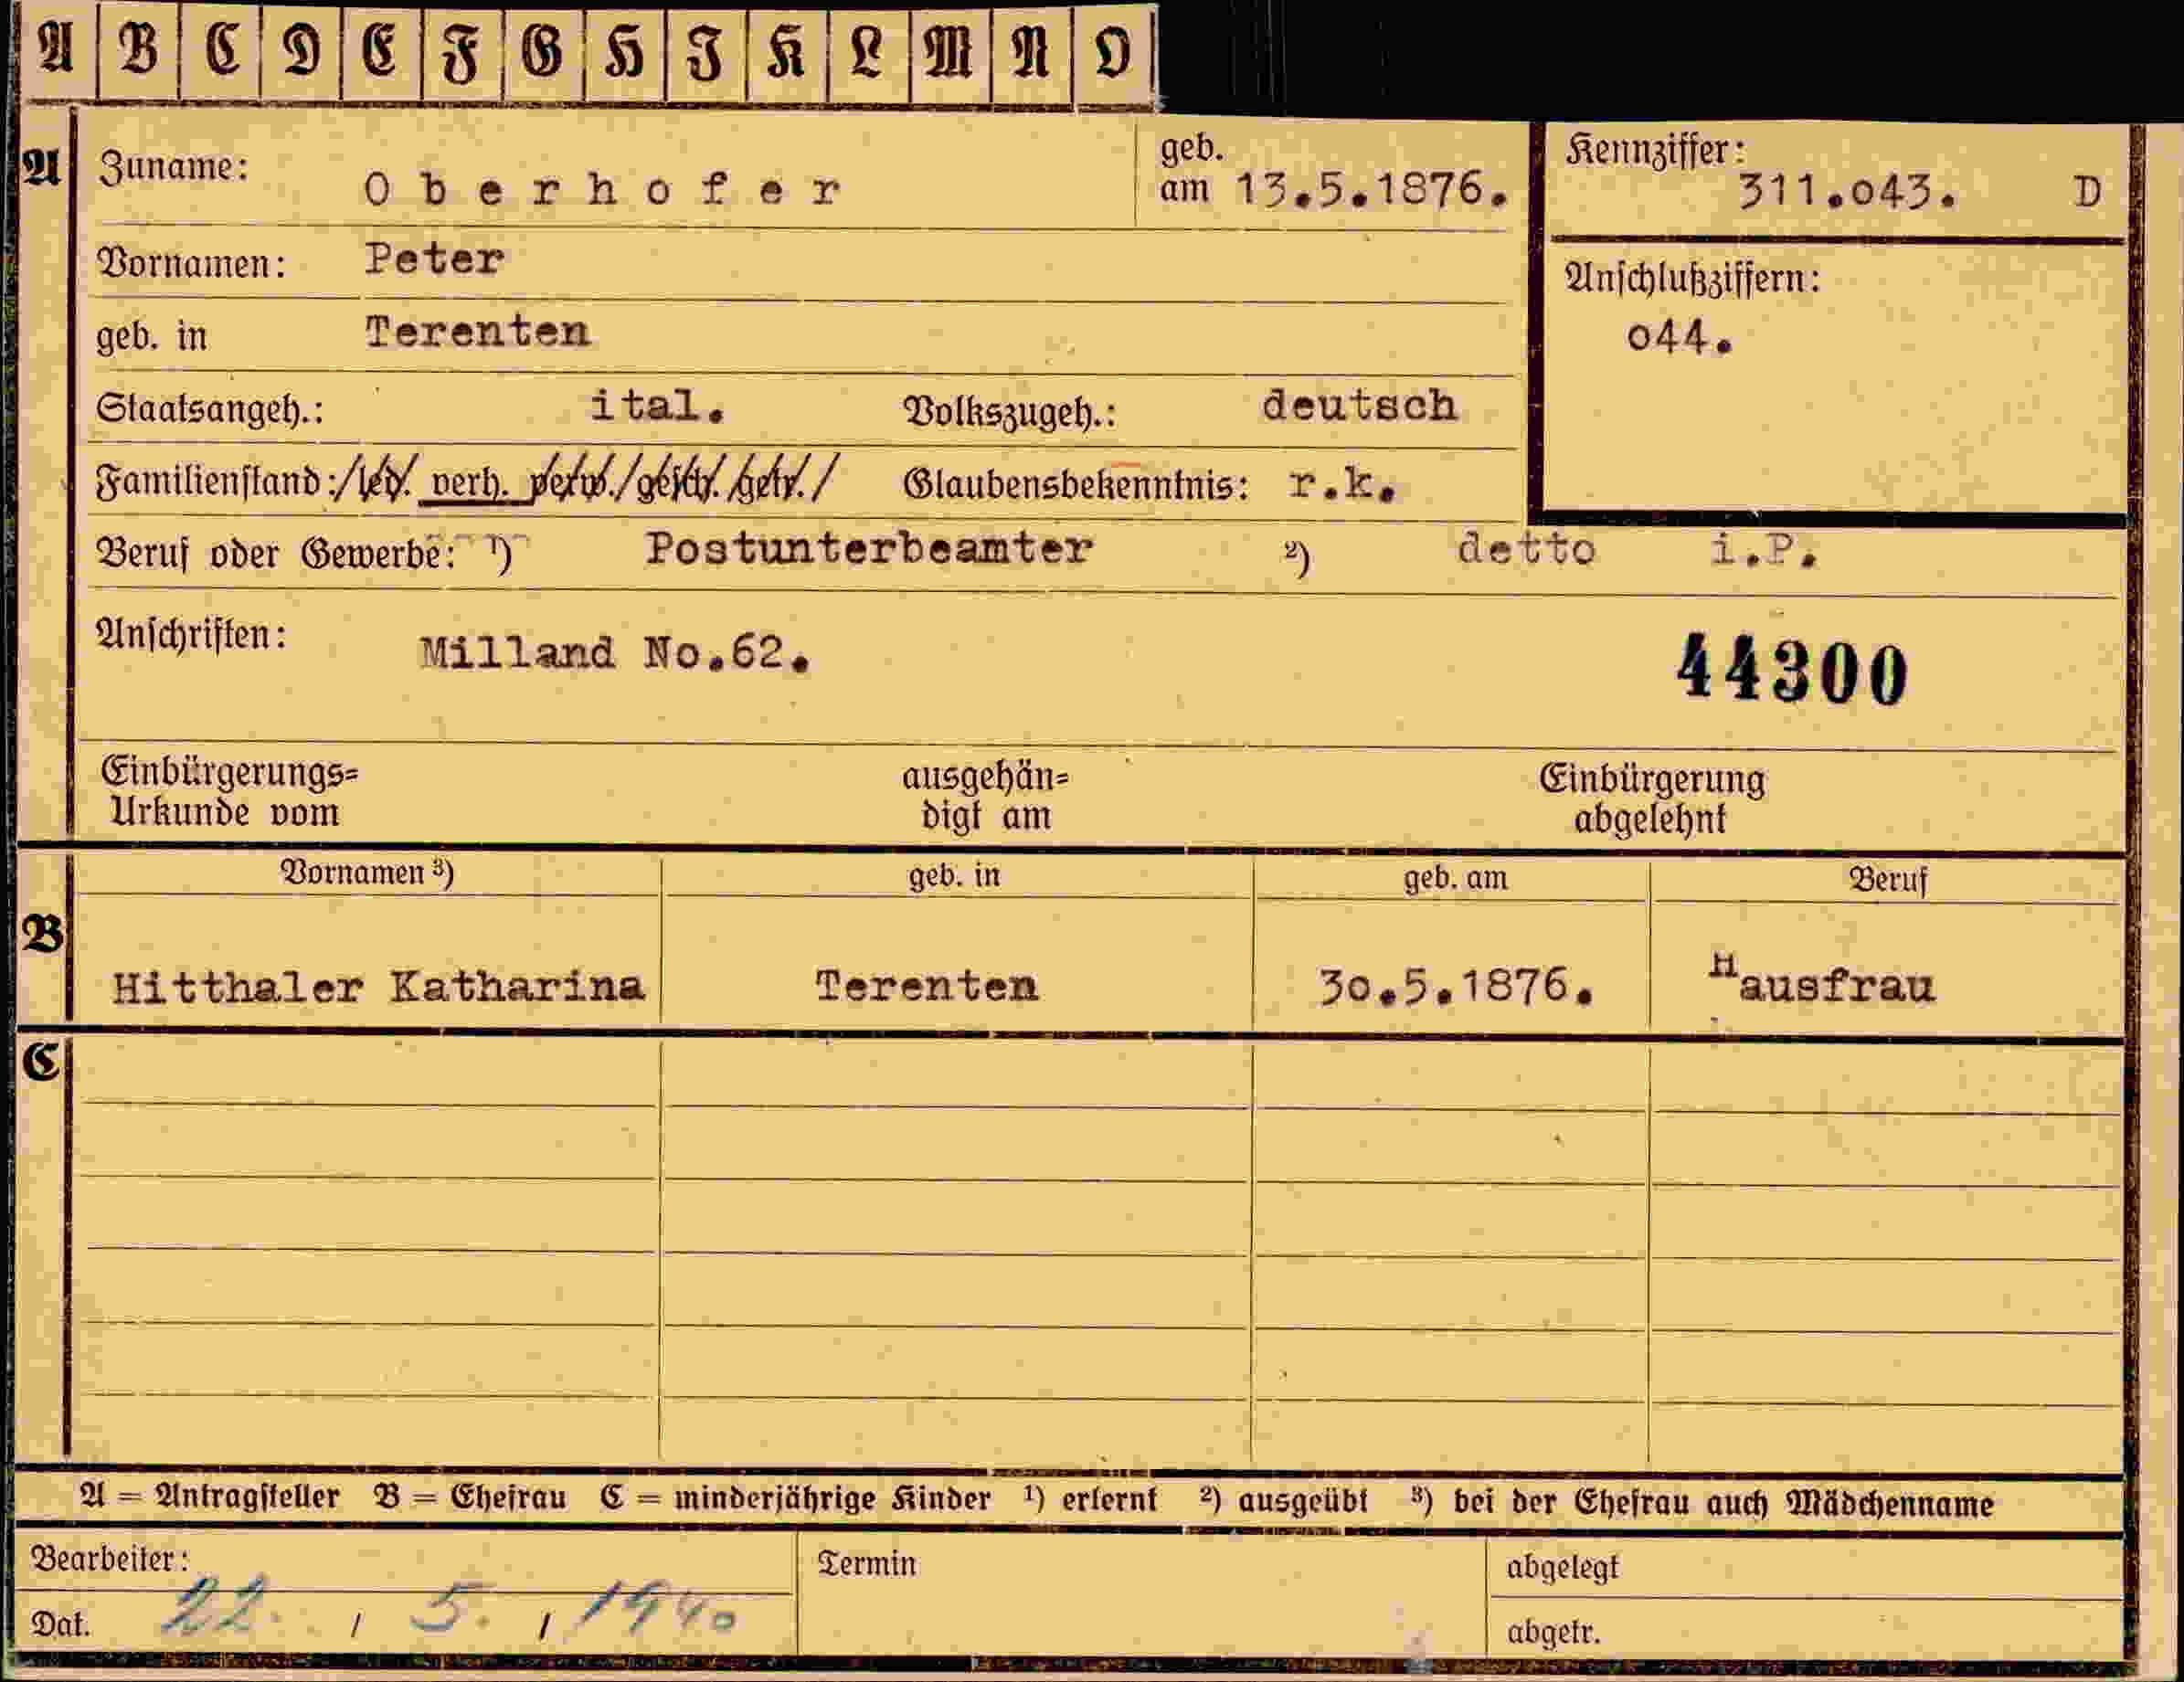 A B C D E F G H I K L M N O
A Zuname: Oberhofer geb. am 13.5.1876. Kennziffer: 311.043. D
Vornamen: Peter
Anschlußziffern:
geb. in Terenten 044.
Staatsangeh.: ital. Volkszugeh.: deutsch
Familienstand: led. verh. verw. gesch. getr. Glaubensbekenntnis: r.k.
Beruf oder Gewerbe: 1) Postunterbeamter 2) detto i.P.
Anschriften: Milland No.62. 44300
Einbürgerungs= ausgehän= Einbürgerung
Urkunde vom digt am abgelehnt
Vornamen 3) geb. in geb. am Beruf
B
Hitthaler Katharina Terenten 30.5.1876. Hausfrau
C
A = Antragsteller B = Ehefrau C = minderjährige Kinder 1) erlernt 2) ausgeübt 3) bei der Ehefrau auch Mädchenname
Bearbeiter: Termin abgelegt
Dat. 22. / 5. / 1940 abgetr.